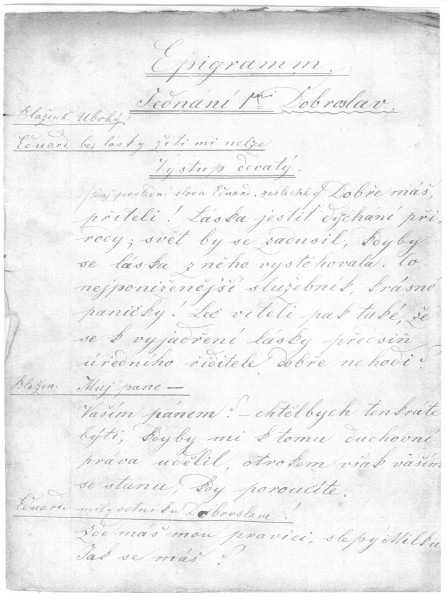 Epigramm.
Jednání 1ní Dobroslav.
Blažená Ubohý!
Eduard. bez lásky žíti mi nelze
Výstup devátý.
poslední slova Eduard. Dobře máš,
příteli! Láska jestiť dýchaní pří-
rody; svět by se zadusil, kdyby
se láska z něho vystěhovala. To
nejponíženější služebník, krásné
paničky! Leč víteli pak také, že
se k vyjadření lásky předsíň
úředního ředitele dobře nehodí?
Blažen. Můj pane —
Vaším pánem? – chtělbych tenkráte
býti, kdyby mi k tomu duchovní
práva udělil, otrokem však vaším
se stanu, kdy poroučíte.
Eduard. milý setníku Dobroslave!
Zde máš mou pravici, slepý Milku
Jak se máš?